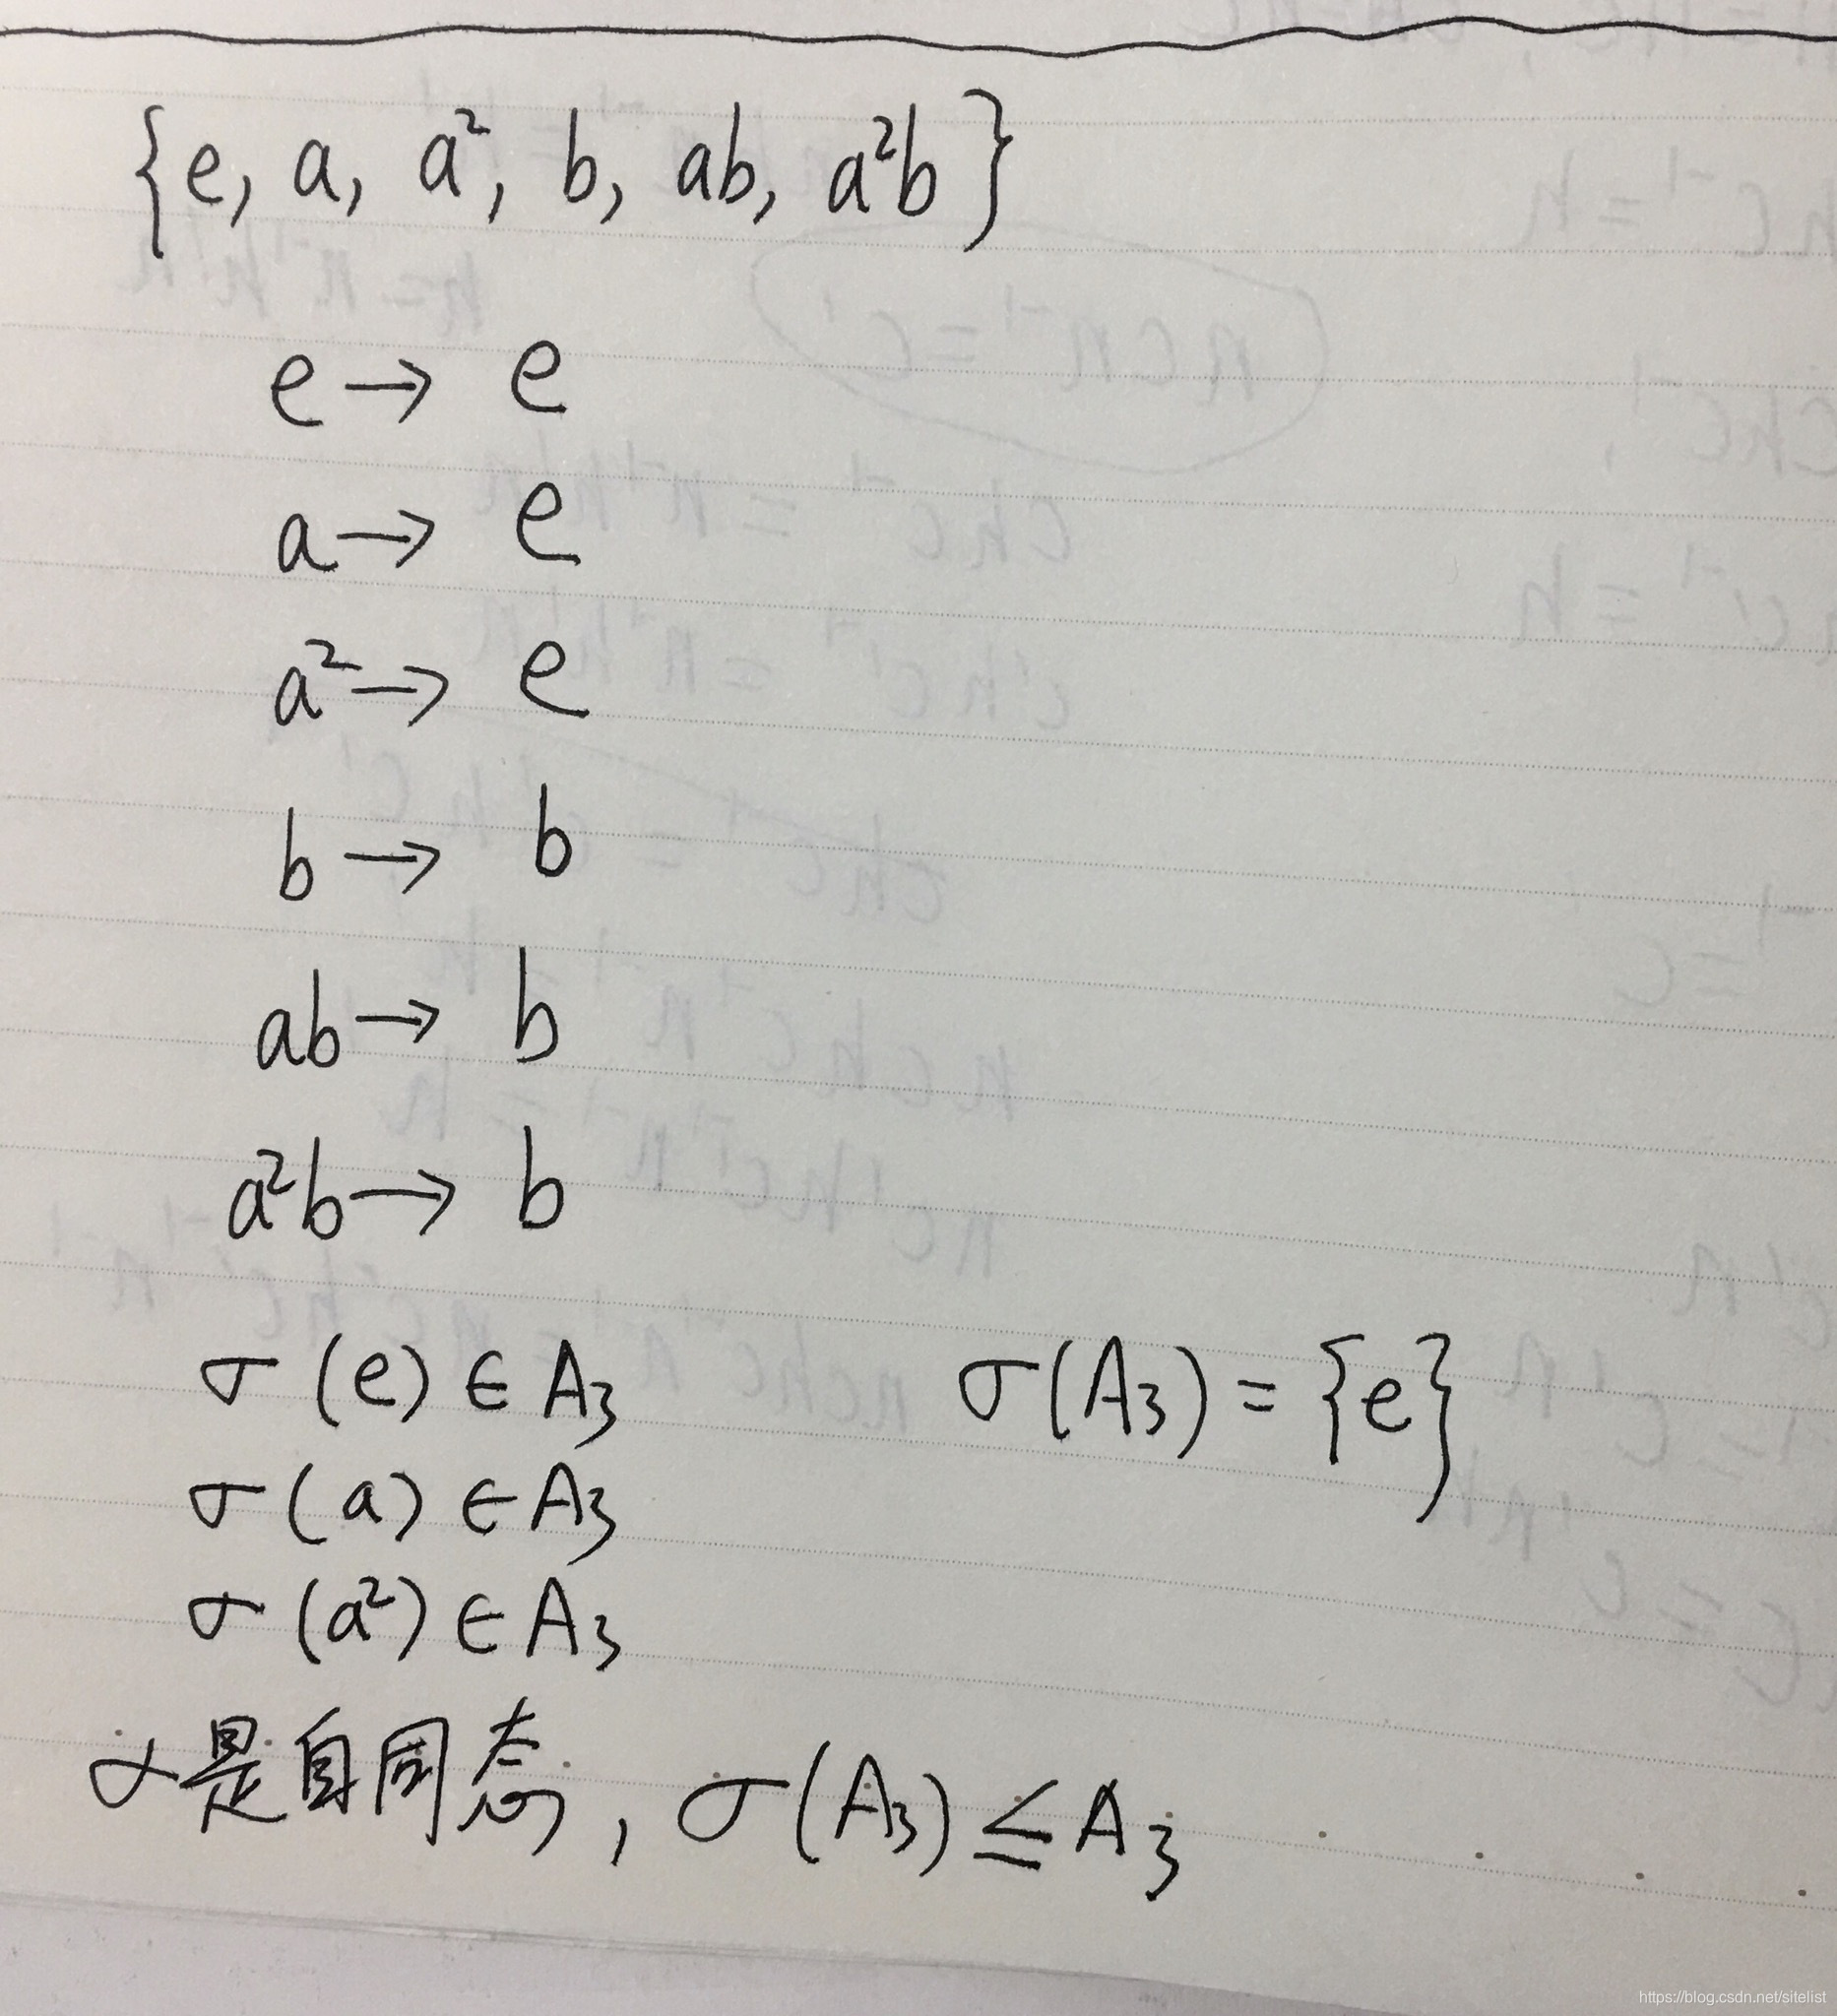 {e, a, a², b, ab, a²b}
e → e
a → e
a² → e
b → b
ab → b
a²b → b
σ(e) ∈ A₃ σ(A₃) = {e}
σ(a) ∈ A₃
σ(a²) ∈ A₃
σ是自同态, σ(A₃) ≤ A₃
https://blog.csdn.net/sitelist